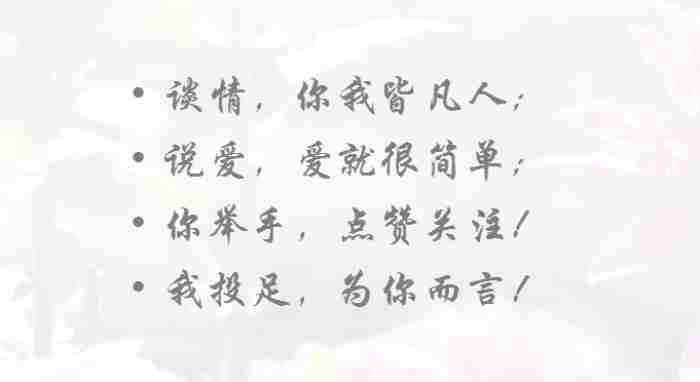 • 谈情，你我皆凡人；
• 说爱，爱就很简单；
• 你举手，点赞关注！
• 我投足，为你而言！